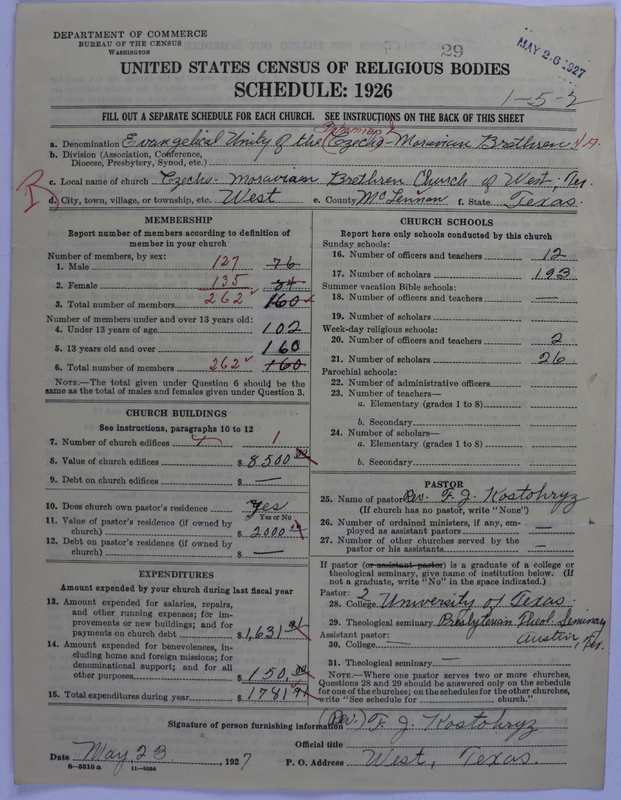 DEPARTMENT OF COMMERCE
BUREAU OF THE CENSUS
WASHINGTON
29
MAY 26 1927
UNITED STATES CENSUS OF RELIGIOUS BODIES
SCHEDULE: 1926
1-5-2
FILL OUT A SEPARATE SCHEDULE FOR EACH CHURCH. SEE INSTRUCTIONS ON THE BACK OF THIS SHEET
a. Denomination Evangelical Unity of the Bohemian & Czecho-Moravian Brethren
b. Division (Association, Conference,
Diocese, Presbytery, Synod, etc.)
c. Local name of church Czecho-Moravian Brethren Church of West, Tex.
d. City, town, village, or township, etc. West e. County McLennan f. State Texas.
MEMBERSHIP
Report number of members according to definition of
member in your church
Number of members, by sex:
1. Male 127 76
2. Female 135 84
3. Total number of members 262 160
Number of members under and over 13 years old:
4. Under 13 years of age 102
5. 13 years old and over 160
6. Total number of members 262 160
NOTE.—The total given under Question 6 should be the
same as the total of males and females given under Question 3.
CHURCH BUILDINGS
See instructions, paragraphs 10 to 12
7. Number of church edifices 1
8. Value of church edifices $ 8500.00
9. Debt on church edifices $ —
10. Does church own pastor's residence Yes
Yes or No
11. Value of pastor's residence (if owned by
church) $ 2000.00
12. Debt on pastor's residence (if owned by
church) $ —
EXPENDITURES
Amount expended by your church during last fiscal year
13. Amount expended for salaries, repairs,
and other running expenses; for im-
provements or new buildings; and for
payments on church debt $ 1,631.91
14. Amount expended for benevolences, in-
cluding home and foreign missions; for
denominational support; and for all
other purposes $ 150.00
15. Total expenditures during year $ 1781.91
CHURCH SCHOOLS
Report here only schools conducted by this church
Sunday schools:
16. Number of officers and teachers 12
17. Number of scholars 193
Summer vacation Bible schools:
18. Number of officers and teachers —
19. Number of scholars
Week-day religious schools:
20. Number of officers and teachers 2
21. Number of scholars 26
Parochial schools:
22. Number of administrative officers
23. Number of teachers—
a. Elementary (grades 1 to 8)
b. Secondary
24. Number of scholars—
a. Elementary (grades 1 to 8)
b. Secondary
PASTOR
25. Name of pastor Rev. F. J. Kostohryz
(If church has no pastor, write "None")
26. Number of ordained ministers, if any, em-
ployed as assistant pastors —
27. Number of other churches served by the
pastor or his assistants —
If pastor (or assistant pastor) is a graduate of a college or
theological seminary, give name of institution below. (If
not a graduate, write "No" in the space indicated.)
Pastor: 2
28. College University of Texas.
29. Theological seminary Presbyterian Theol. Seminary
Assistant pastor: Austin, Tex.
30. College —
31. Theological seminary —
NOTE.—Where one pastor serves two or more churches,
Questions 28 and 29 should be answered only on the schedule
for one of the churches; on the schedules for the other churches,
write "See schedule for church."
Signature of person furnishing information (Rev.) F. J. Kostohryz
Official title
Date May 23, 1927 P. O. Address West, Texas.
8-5518a 11-9084